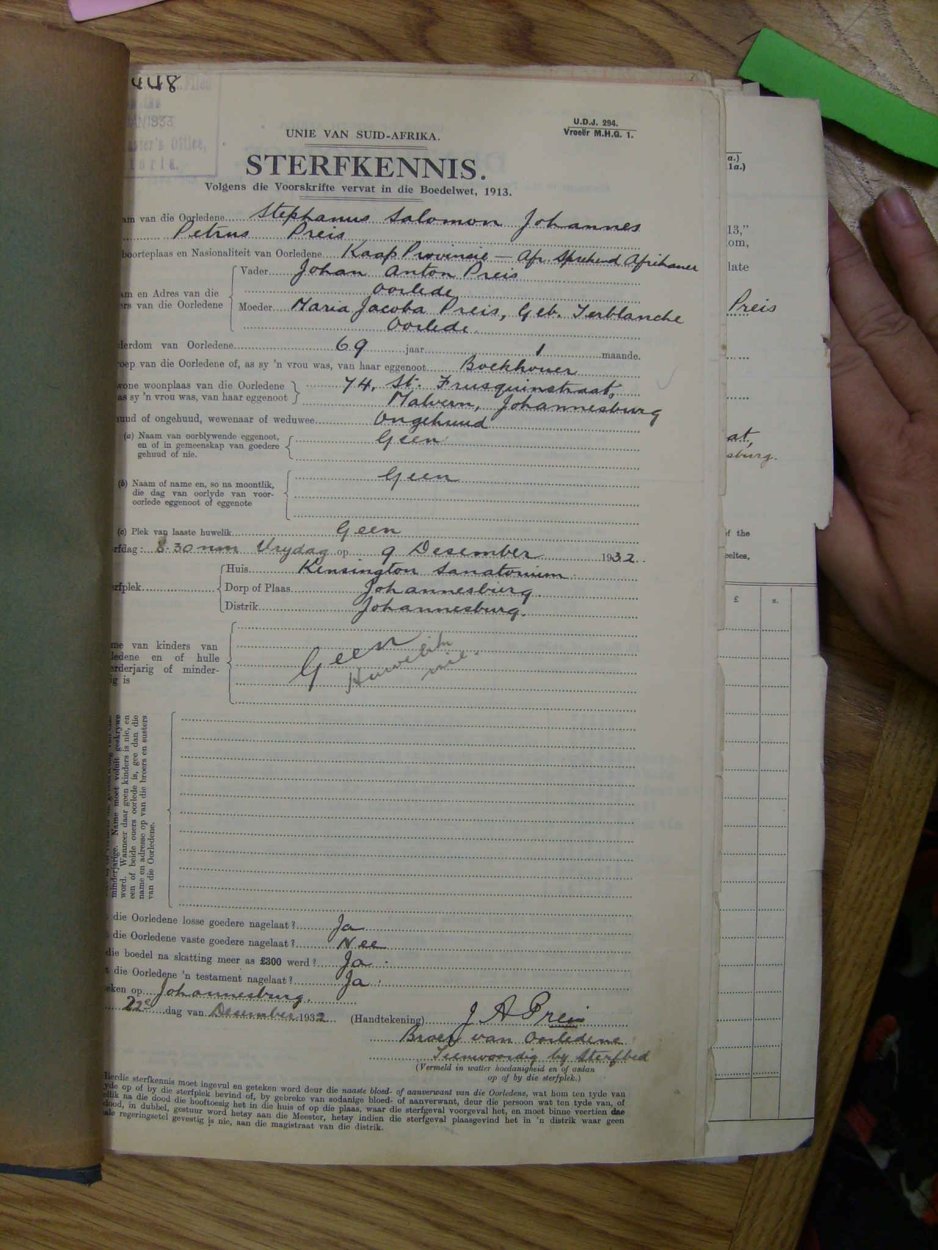 448
1933
UNIE VAN SUID-AFRIKA.
U.D.J. 294.
Vroeër M.H.G. 1.
STERFKENNIS.
Volgens die Voorskrifte vervat in die Boedelwet, 1913.
am van die Oorledene Stephanus Salomon Johannes
Petrus Preis
boorteplaas en Nasionaliteit van Oorledene Kaap Provinsie — Afr. Sprekend Afrikaner
Vader Johan Anton Preis
Oorlede
am en Adres van die
ers van die Oorledene
Moeder Maria Jacoba Preis, Geb. Terblanche
Oorlede.
derdom van Oorledene 69 jaar 1 maande.
roep van die Oorledene of, as sy 'n vrou was, van haar eggenoot Boekhouer
wone woonplaas van die Oorledene
as sy 'n vrou was, van haar eggenoot
74, St. Frusquinstraat,
Malvern, Johannesburg
uud of ongehuud, wewenaar of weduwee Ongehuud
(a) Naam van oorblywende eggenoot,
en of in gemeenskap van goedere
gehuud of nie.
Geen
(b) Naam of name en, so na moontlik,
die dag van oorlyde van voor-
oorlede eggenoot of eggenote
Geen
(c) Plek van laaste huwelik Geen
rfdag: 8.30 nm Vrydag op 9 Desember 1932
rfplek
Huis Kensington Sanatorium
Dorp of Plaas Johannesburg
Distrik Johannesburg.
me van kinders van
ledene en of hulle
erderjarig of minder-
ig is
Geen
Huwelik
nie.
minderjarige. Name moet voluit geskrywe
word. Wanneer daar geen kinders is nie, en
een of beide ouers oorlede is, gee dan die
name en adresse op van die broers en susters
van die Oorledene.
die Oorledene losse goedere nagelaat? Ja
die Oorledene vaste goedere nagelaat? Nee
die boedel na skatting meer as £300 werd? Ja
die Oorledene 'n testament nagelaat? Ja
ken op Johannesburg.
22e dag van Desember 1932 (Handtekening) J A Preis
Broer van Oorledene
Teenwoordig by Sterfbed
(Vermeld in watter hoedanigheid en of anlan
op of by die sterfplek.)
ierdie sterfkennis moet ingeval en geteken word deur die naaste bloed- of aanverwant van die Oorledene, wat hom ten tyde van
yde op of by die sterfplek bevind of, by gebreke van sodanige bloed- of aanverwant, deur die persoon wat ten tyde van, of
lik na die dood die hooftoesig het in die huis of op die plaas, waar die sterfgeval voorgeval het, en moet binne veertien dae
dood, in dubbel, gestuur word hetsy aan die Meester, hetsy indien die sterfgeval plaasgevind het in 'n distrik waar geen
ale regeringsetel gevestig is nie, aan die magistraat van die distrik.
a.)
1a.)
13,"
om,
late
Preis
at,
sburg.
f the
eeltes,
£ s.